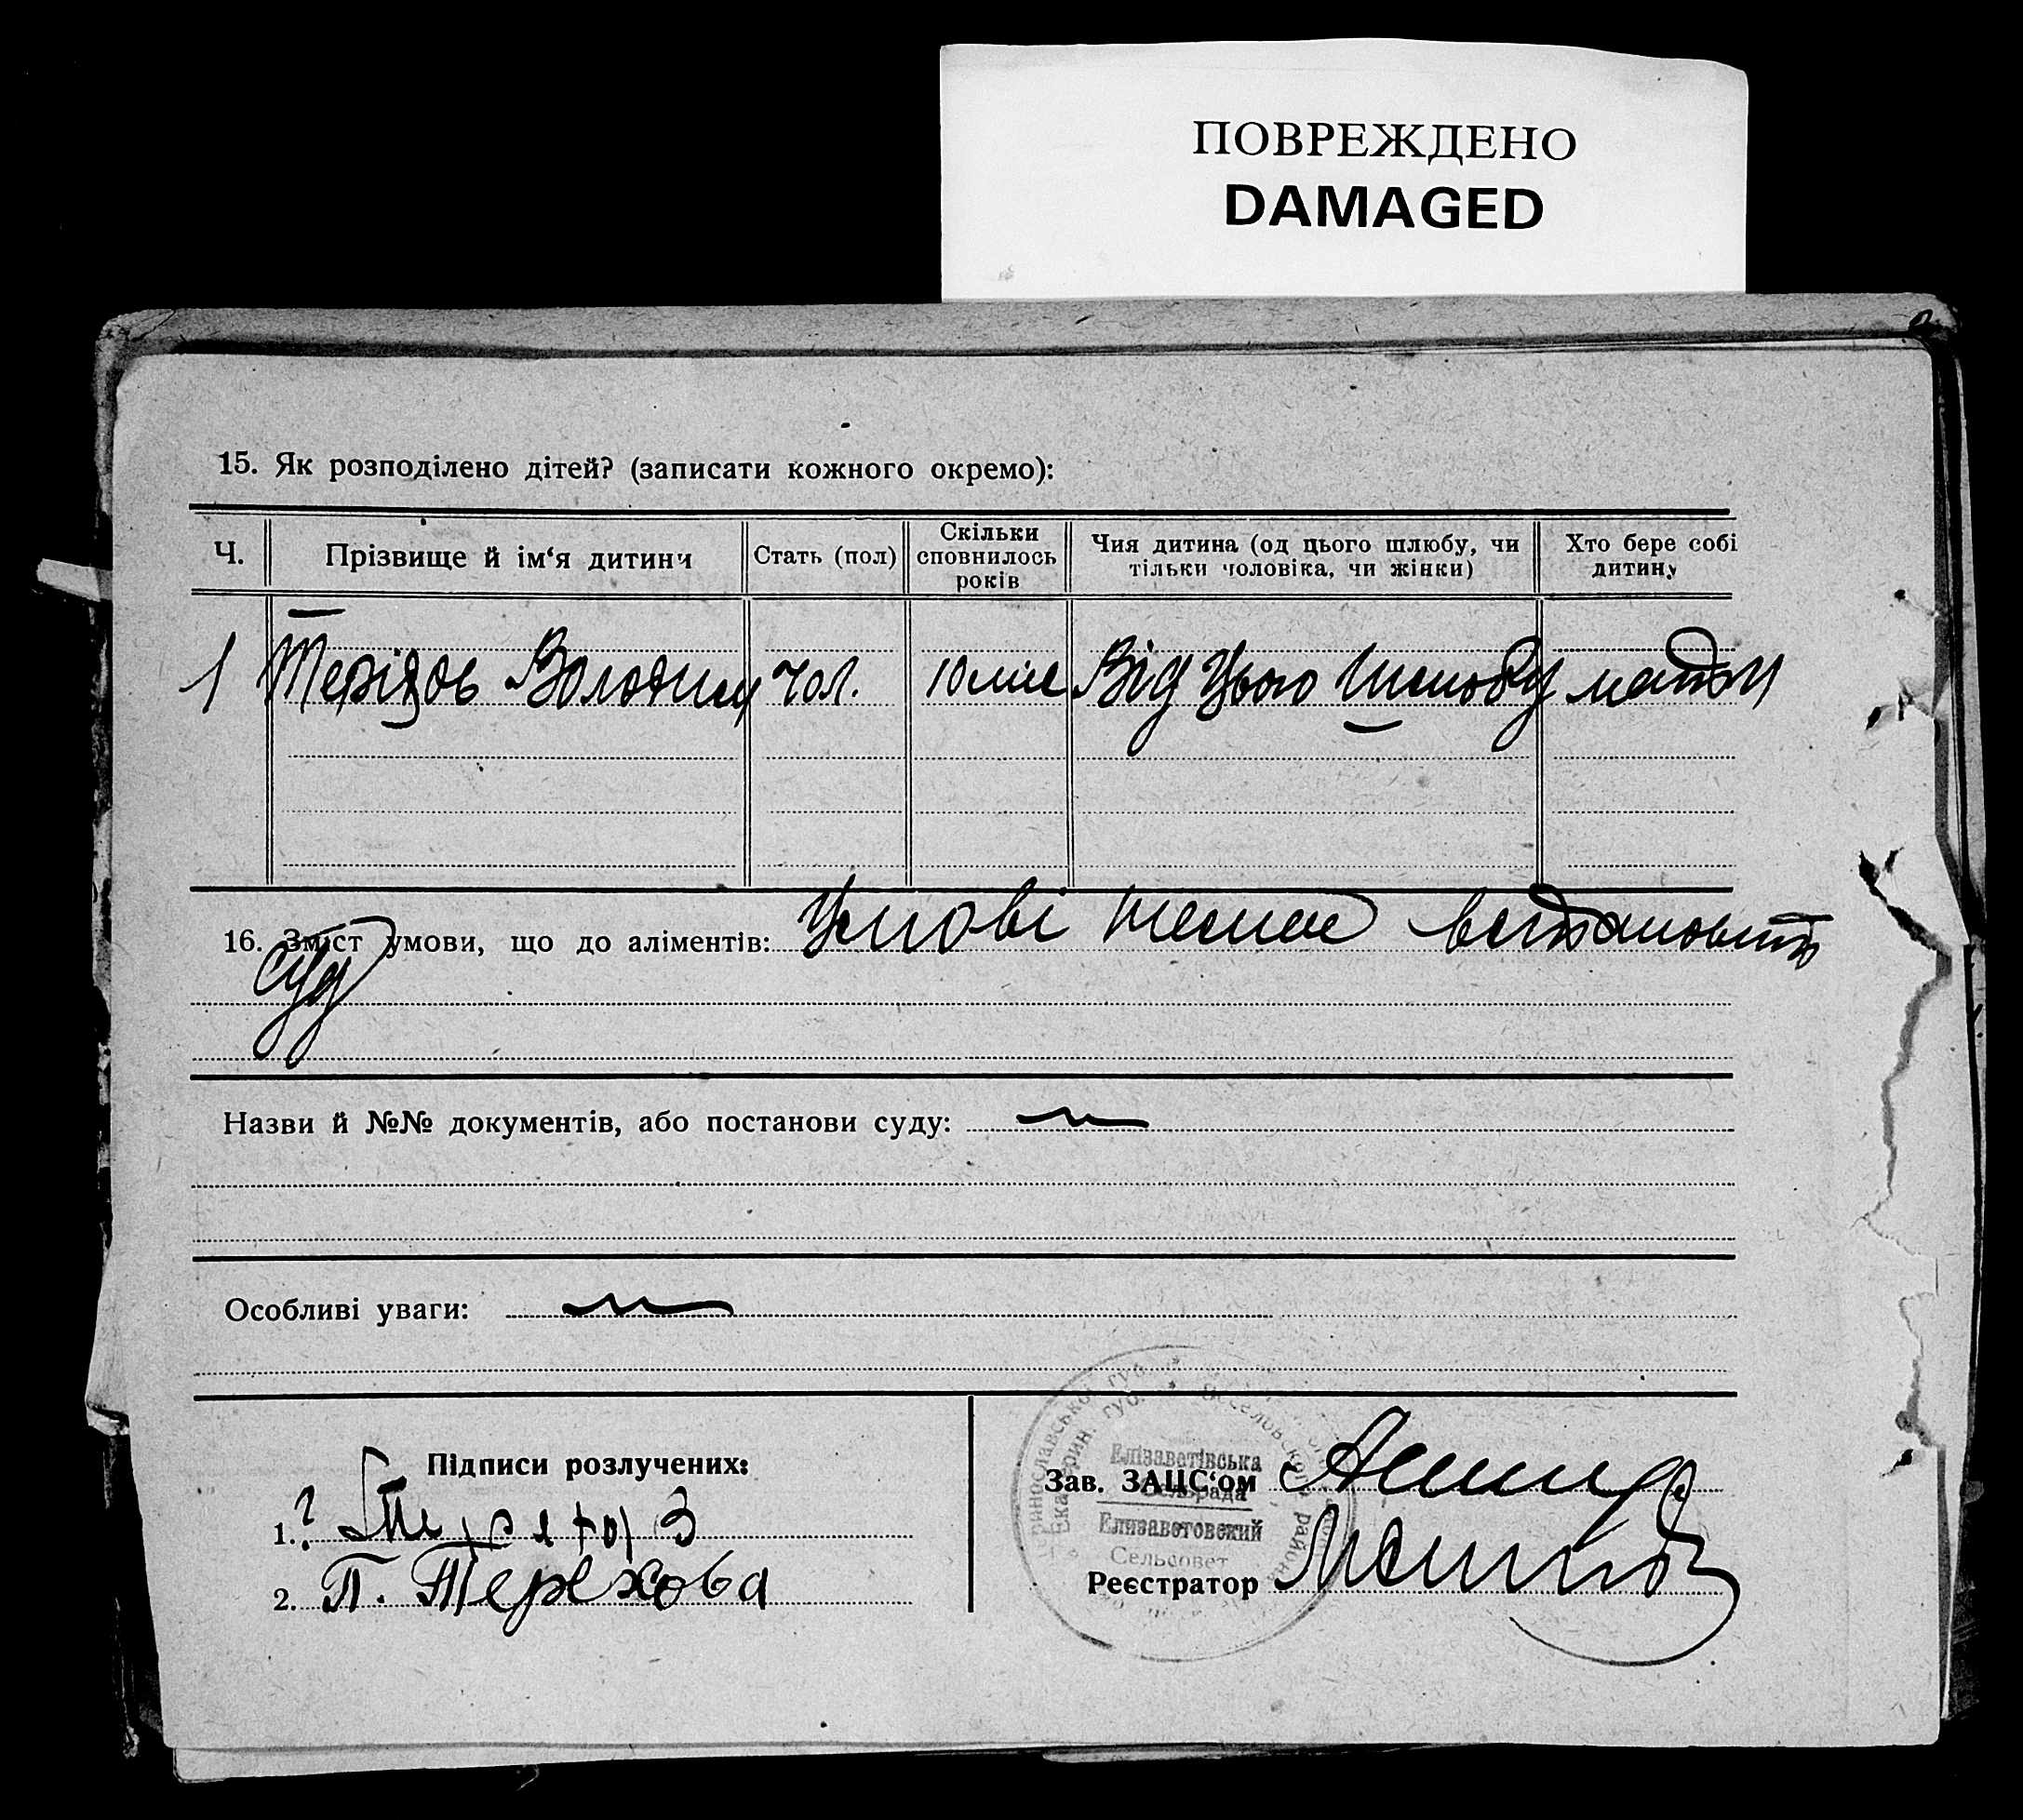 ПОВРЕЖДЕНО
DAMAGED
15. Як розподілено дітей? (записати кожного окремо):
Ч.
Прізвище й ім‘я дитини
Стать (пол)
Скільки сповнилось років
Чия дитина (од цього шлюбу, чи тільки чоловіка, чи жінки)
Хто бере собі дитину
1 Володим чол. 10 міс Від цього шлюбу
16. Зміст умови, що до аліментів: Умови встановить
суд
Назви й №№ документів, або постанови суду:
Особливі уваги:
Підписи розлучених:
1.
2. П. Терехова
Зав. ЗАЦС‘ом
Реєстратор
Елізаветівська
Сельрада
Елизаветовский
Сельсовет